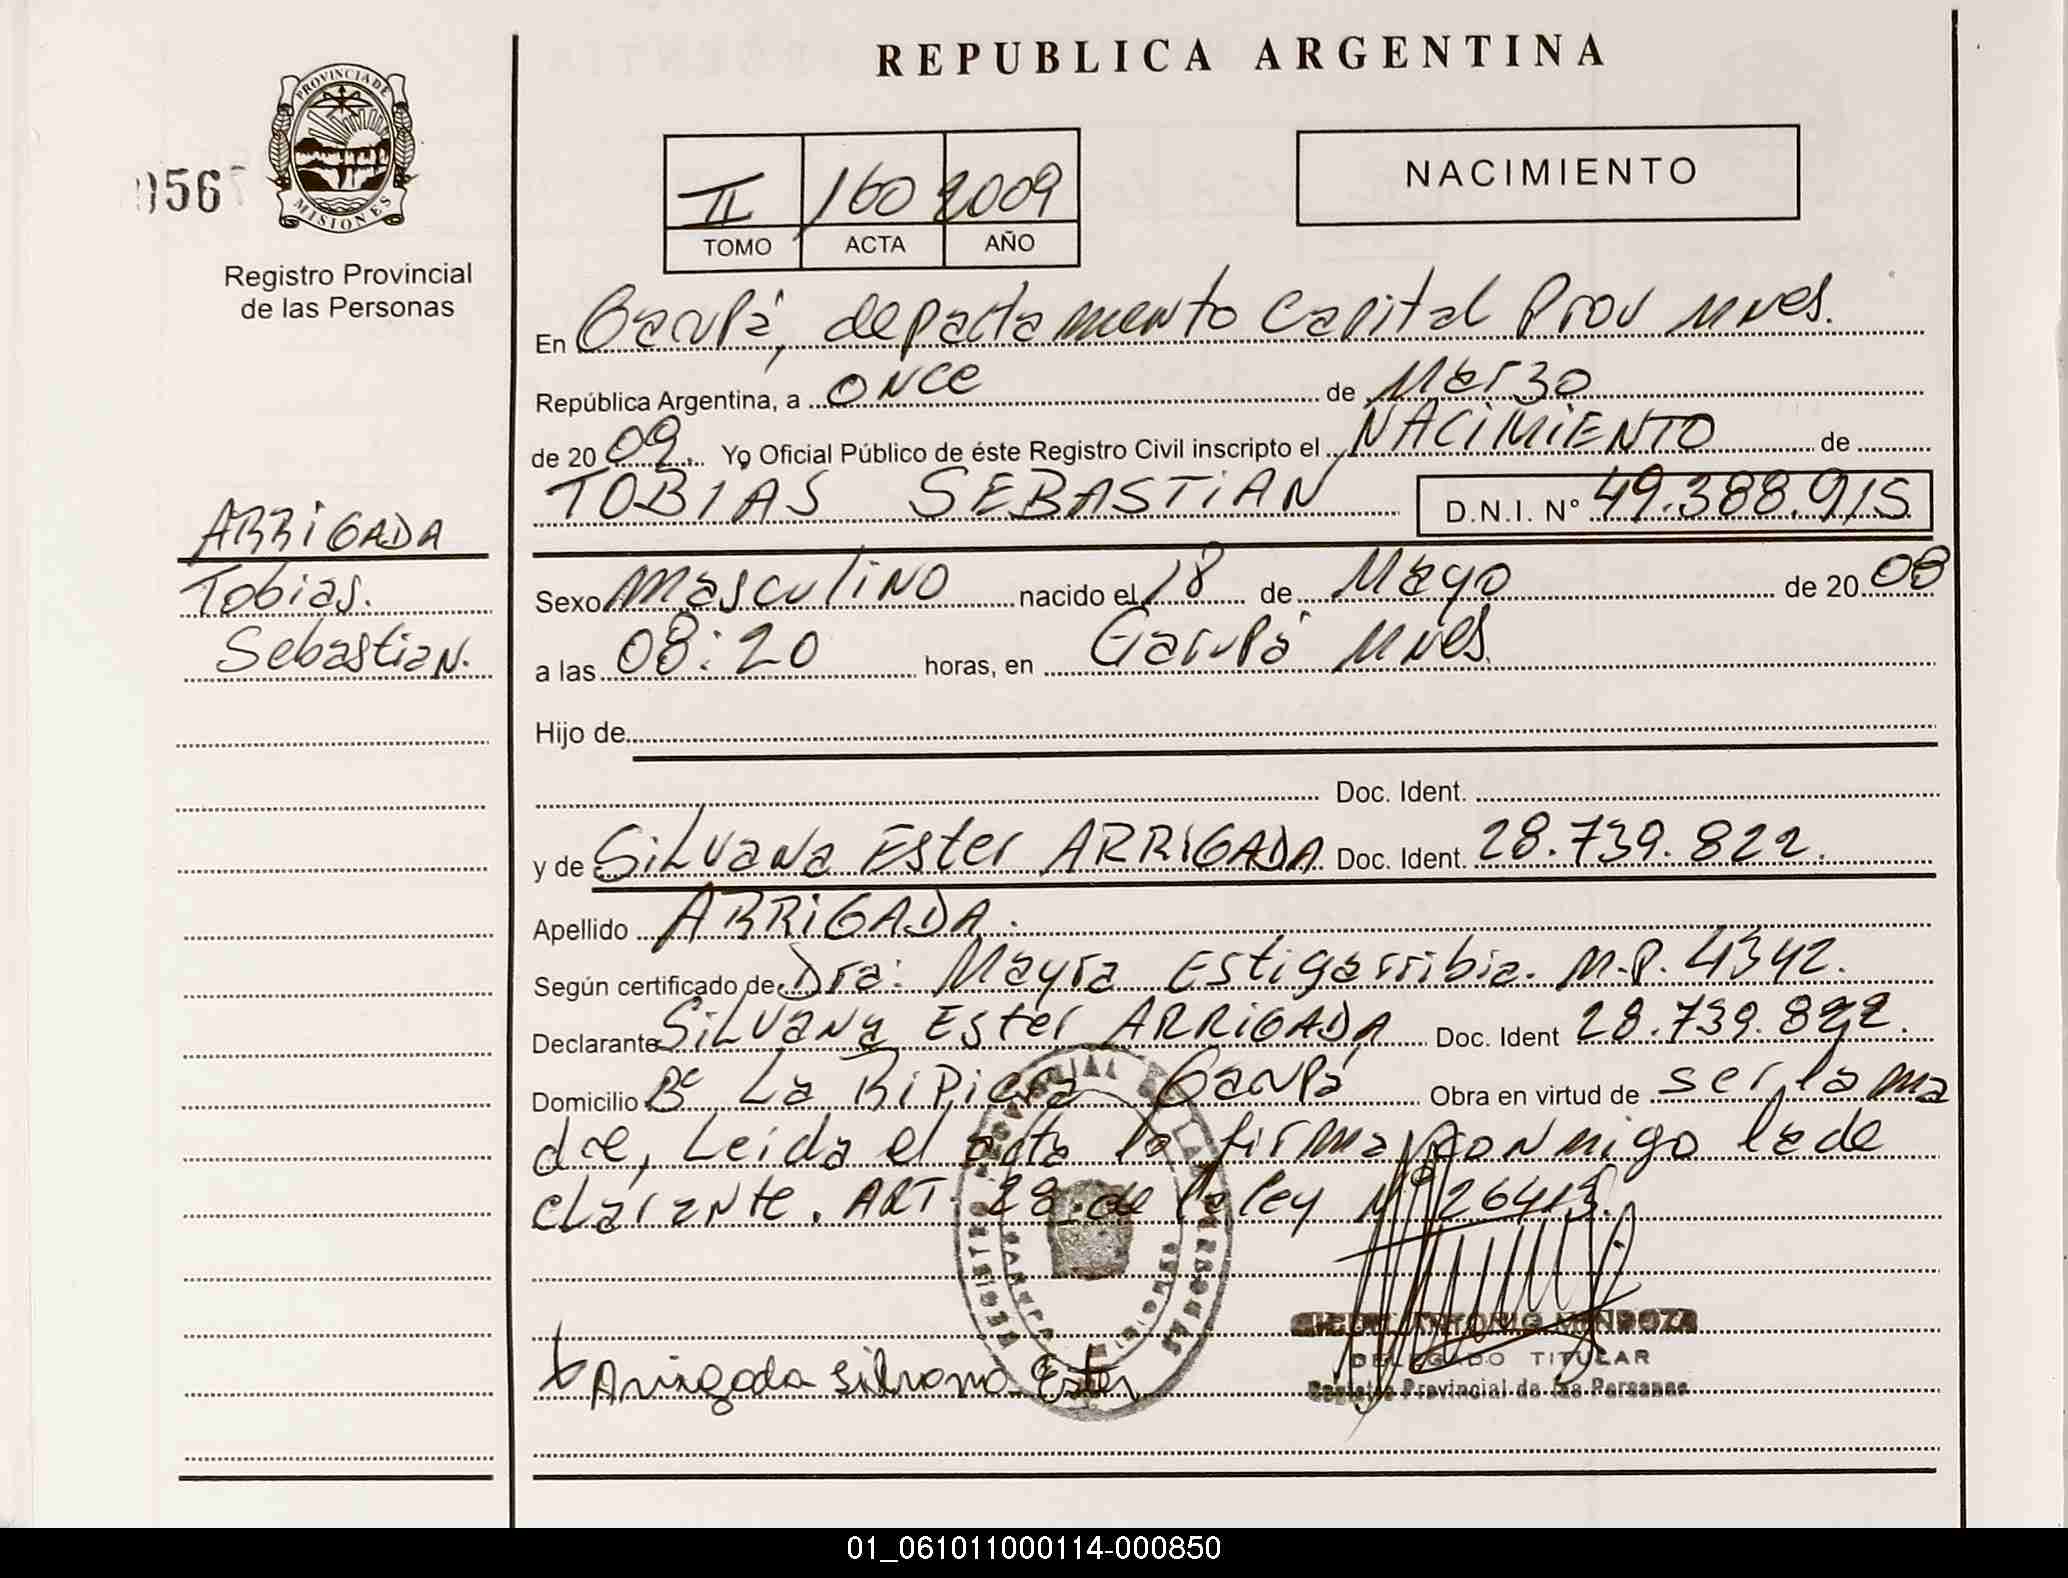 REPUBLICA ARGENTINA
PROVINCIA DE
MISIONES
567
Registro Provincial
de las Personas
II 160 2009
TOMO ACTA AÑO
NACIMIENTO
En Garupá, departamento Capital Prov Mnes.
República Argentina, a once de Marzo
de 20 09. Yo Oficial Público de éste Registro Civil inscripto el NACIMIENTO de
TOBIAS SEBASTIAN D.N.I. Nº 49.388.915
ARRIGADA
Tobias.
Sebastian.
Sexo Masculino nacido el 18 de Mayo de 20 08
a las 08:20 horas, en Garupá Mnes.
Hijo de
Doc. Ident.
y de Silvana Ester ARRIGADA Doc. Ident. 28.739.822.
Apellido ARRIGADA.
Según certificado de Dra: Mayra Estigarribia. M.P. 4342.
Declarante Silvana Ester ARRIGADA Doc. Ident 28.739.822.
Domicilio Bº La Ripiera Garupá Obra en virtud de ser la ma
dre, Leida el acta la firma conmigo la de
clarante. ART. 28 de la ley Nº 26413.
ANTONIO MENDOZA
DELEGADO TITULAR
Registro Provincial de las Personas
Arrigada Silvana Ester
01_061011000114-000850